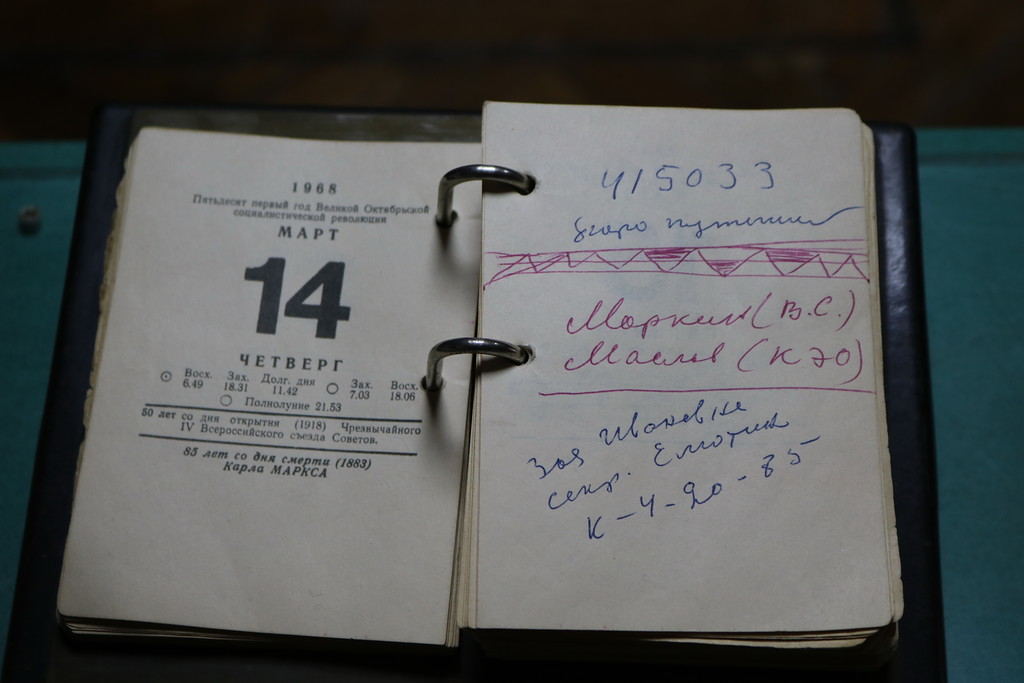 1968
Пятьдесят первый год Великой Октябрьской
социалистической революции
МАРТ
14
ЧЕТВЕРГ
Восх. Зах. Долг. дня Зах. Восх.
6.49 18.31 11.42 7.03 18.06
Полнолуние 21.53
50 лет со дня открытия (1918) Чрезвычайного
IV Всероссийского съезда Советов.
85 лет со дня смерти (1883)
Карла МАРКСА
415033
бюро
Маркин (В.С.)
Маслов (КЭО)
Зоя Ивановна
секр.
К-4-20-85